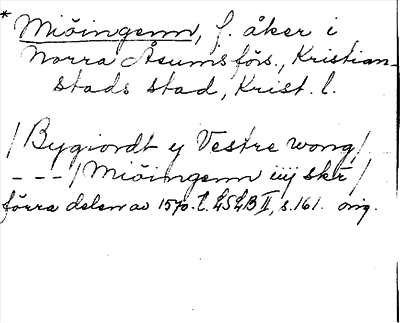 * Miöingenn, f. åker i
Norra Åsums förs., Kristian-
stads stad, Krist. l.
/ Bygiordt y Vestre wong /
– – – / Miöingenn iiij skr /
förra delen av 1570.t. LSLB II, s. 161. orig.